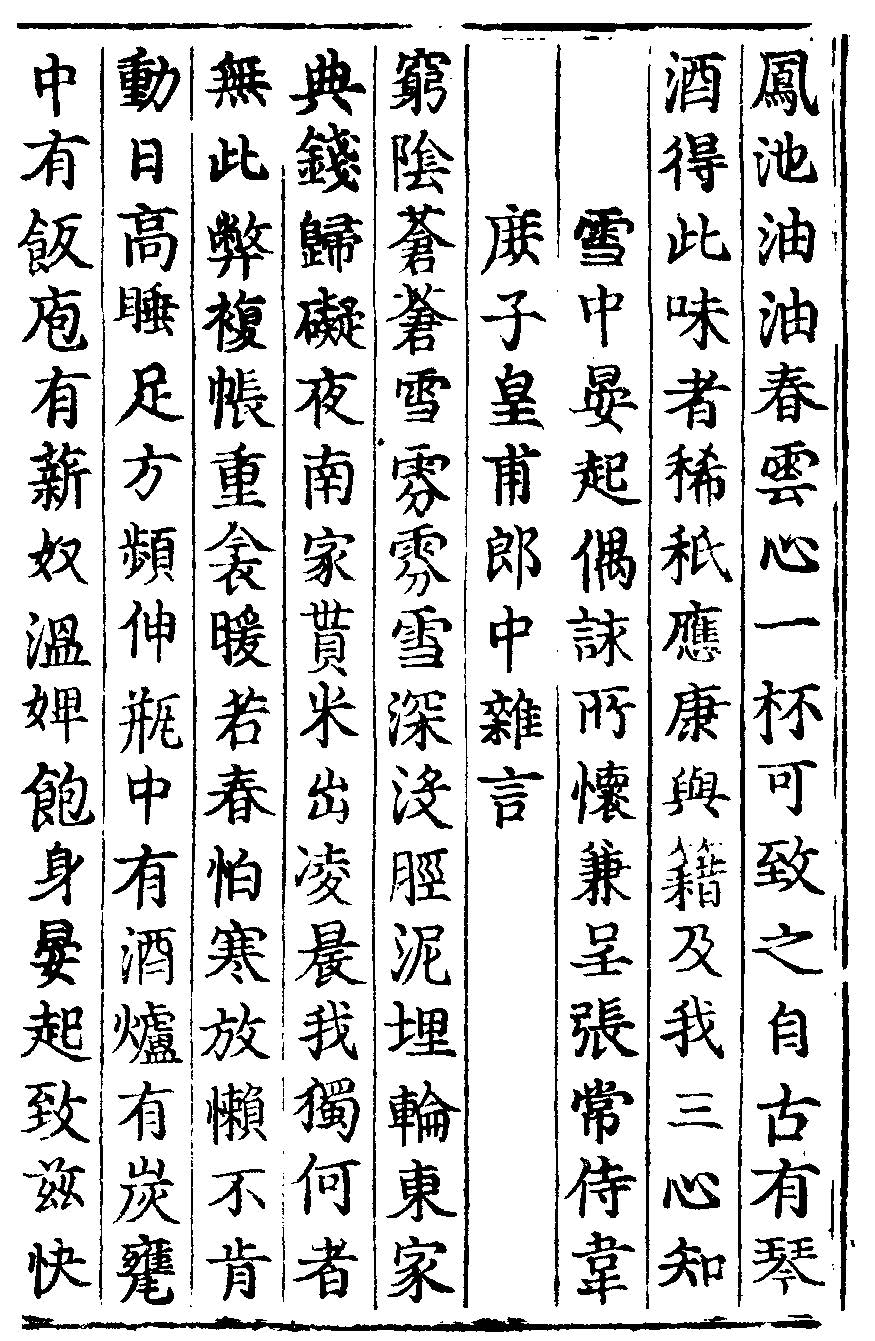 鳳池油油春雲心一杯可致之自古有琴
酒得此味者稀秖應康與籍及我三心知
雪中晏起偶詠所懷兼呈張常侍韋
庶子皇甫郎中雜言
窮陰蒼蒼雪雰雰雪深沒脛泥埋輪東家
典錢歸礙夜南家貰米出凌晨我獨何者
無此弊複帳重衾暖若春怕寒放懶不肯
動日高睡足方頻伸瓶中有酒爐有炭甕
中有飯庖有薪奴溫婢飽身晏起致茲快